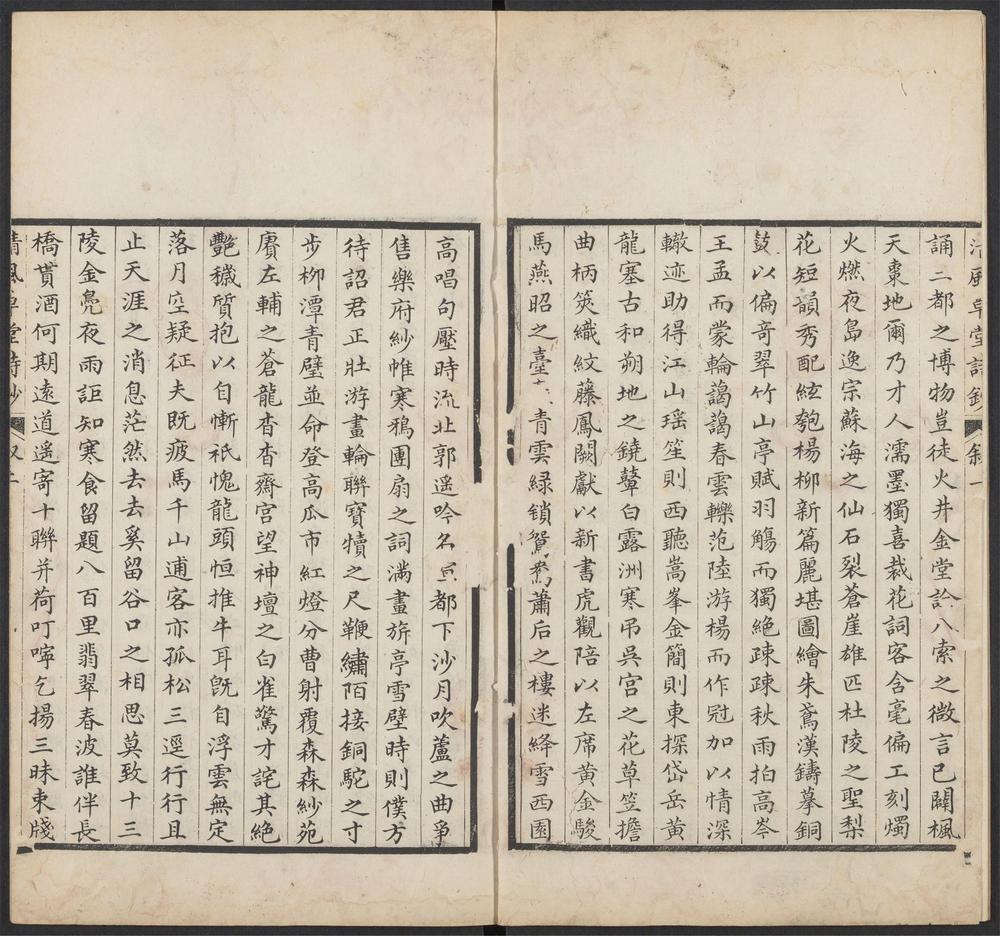 清風草堂詩鈔 敘 一
誦二都之博物豈徒火井金堂訟八索之微言已闢楓
天棗地爾乃才人濡墨獨喜裁花詞客含毫偏工刻燭
火燃夜島逸宗蘇海之仙石裂蒼崖雄匹杜陵之聖梨
花短韻秀配絃匏楊柳新篇麗堪圖繪朱鳶漢鑄摹銅
鼓以偏奇翠竹山亭賦羽觴而獨絶疎疎秋雨拍高岑
王孟而蒙輪藹藹春雲轢范陸游楊而作冠加以情深
轍迹助得江山瑶笙則西聽嵩峯金簡則東探岱岳黄
龍塞古和朔地之鐃鼙白露洲寒弔吳宫之花草笠擔
曲柄筴織紋藤鳳闕獻以新書虎觀陪以左席黄金駿
馬燕昭之臺青雲緑鎖鴛鴦蕭后之樓迷絳雪西園
高唱句壓時流北郭遥吟名亘都下沙月吹蘆之曲爭
售樂府紗帷寒鴉團扇之詞滿畫旂亭雪壁時則僕方
待詔君正壯游畫輪聯寶犢之尺鞭繡陌接銅駝之寸
步栁潭青璧並命登高瓜市紅燈分曹射覆森森紗苑
賡左輔之蒼龍杳杳齋宫望神壇之白雀驚才詫其絶
艷穢質抱以自慚祇愧龍頭恒推牛耳旣自浮雲無定
落月空疑征夫既疲馬千山逋客亦孤松三逕行行且
止天涯之消息茫然去去奚留谷口之相思莫致十三
陵金鳧夜雨詎知寒食留題八百里翡翠春波誰伴長
橋貰酒何期遠道遥寄十聯并荷叮嚀乞揚三昧束牋
清風草堂詩鈔 敘 二